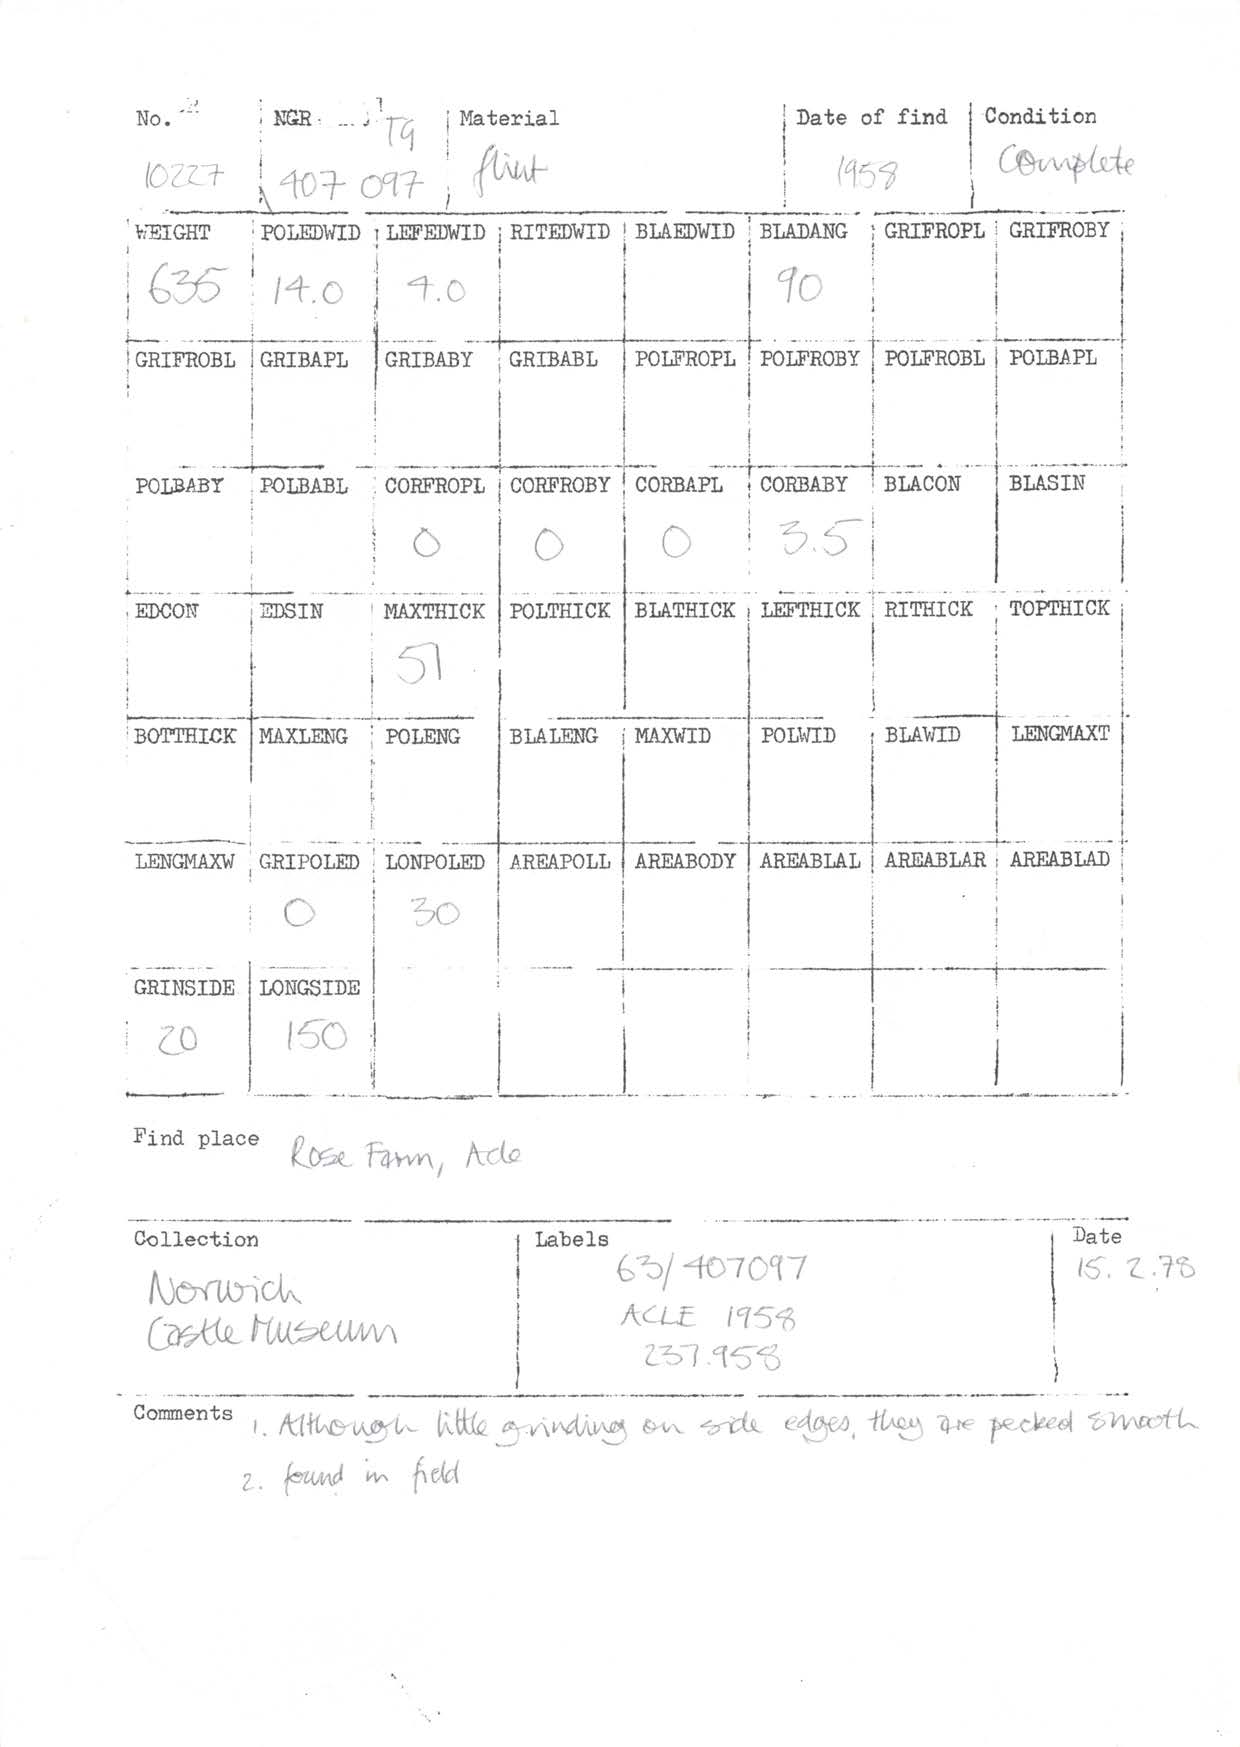 No. NGR TG Material Date of find Condition
10227 407 097 flint 1958 Complete
WEIGHT POLEDWID LEFEDWID RITEDWID BLAEDWID BLADANG GRIFROPL GRIFROBY
635 14.0 4.0 90
GRIFROBL GRIBAPL GRIBABY GRIBABL POLFROPL POLFROBY POLFROBL POLBAPL
POLBABY POLBABL CORFROPL CORFROBY CORBAPL CORBABY BLACON BLASIN
0 0 0 3.5
EDCON EDSIN MAXTHICK POLTHICK BLATHICK LEFTHICK RITHICK TOPTHICK
51
BOTTHICK MAXLENG POLENG BLALENG MAXWID POLWID BLAWID LENGMAXT
LENGMAXW GRIPOLED LONPOLED AREAPOLL AREABODY AREABLAL AREABLAR AREABLAD
0 30
GRINSIDE LONGSIDE
20 150
Find place Rose Farm, Acle
Collection Labels Date
63/407097 15.2.78
Norwich
ACLE 1958
Castle Museum
237.958
Comments 1. Although little grinding on side edges, they are pecked smooth
2. found in field